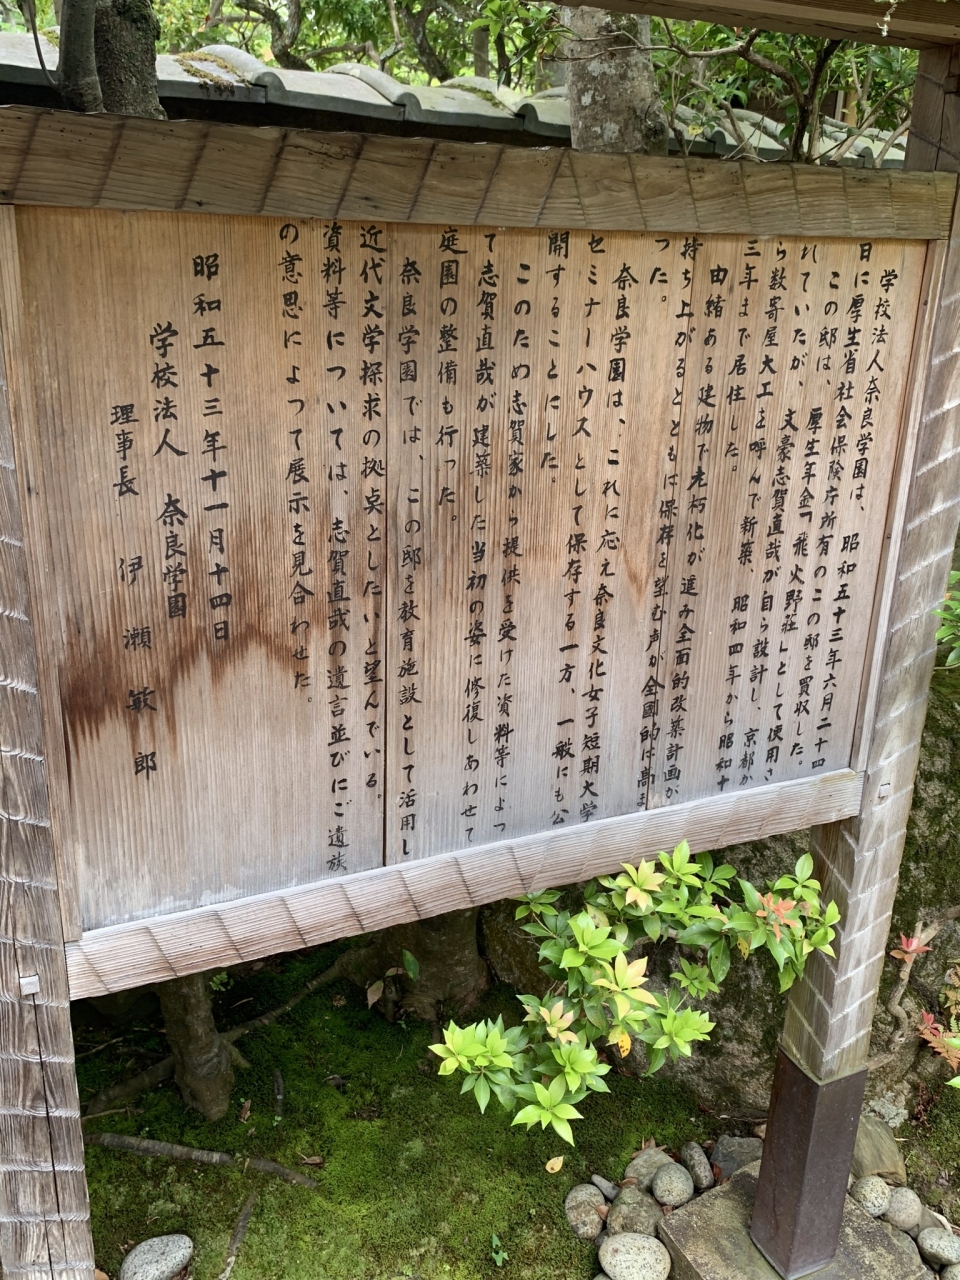 学校法人奈良学園は、昭和五十三年六月二十四
日に厚生省社会保険庁所有のこの邸を買収した。
この邸は、厚生年金「飛火野荘」として使用さ
れていたが、文豪志賀直哉が自ら設計し、京都か
ら数寄屋大工を呼んで新築、昭和四年から昭和十
三年まで居住した。
由緒ある建物で老朽化が進み全面的改築計画が
持ち上がるとともは保存を望む声が全国的は高ま
った。
奈良学園は、これに応え奈良文化女子短期大学
セミナーハウスとして保存する一方、一般にも公
開することにした。
このため志賀家から提供を受けた資料等によっ
て志賀直哉が建築した当初の姿に修復しあわせて
庭園の整備も行った。
奈良学園では、この邸を教育施設として活用し
近代文学探求の拠点としたいと望んでいる。
資料等については、志賀直哉の遺言並びにご遺族
の意思によって展示を見合わせた。
昭和五十三年十一月十四日
学校法人 奈良学園
理事長 伊瀬敏郎